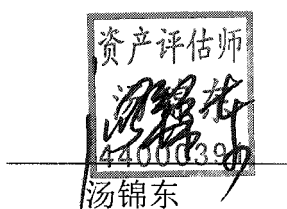 资产评估师
汤锦东
44000394
汤锦东